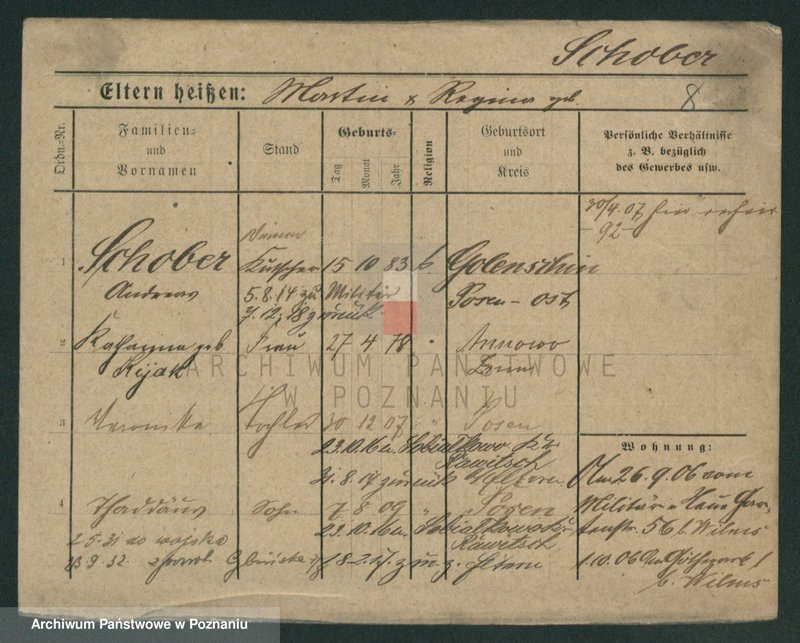 Schober
Eltern heißen: Martin & Regina geb. 8
Ordn.-Nr. Familien- und Vornamen Stand Geburts- Tag Monat Jahr Religion Geburtsort und Kreis Persönliche Verhältnisse z. B. bezüglich des Gewerbes usw.
30/4. 07 hier
-92-
1 Schober Kutscher 15 10 83 k. Golenschin
Andreas 5.8.14 zu Militär Posen-Ost
7.12.18 zurück
2 Katharina geb. Frau 27 4 78 Annowo
Kijak
ARCHIWUM PAŃSTWOWE
W POZNANIU
3 Tochter 30 12 07 " Posen
23.10.16 n.
Rawitsch
31.8.17 zurück Eltern
Wohnung:
26.9.06 vom
Militär n. Neue Gar-
tenstr. 56 b. Wilms
1.10.06
b. Wilms
4 Thaddäus Sohn 7 8 09 " Posen
23.10.16 n.
Rawitsch
2.5.31 do wojska
23.9.32. z powrot 18.2.17. z. Eltern
Archiwum Państwowe w Poznaniu